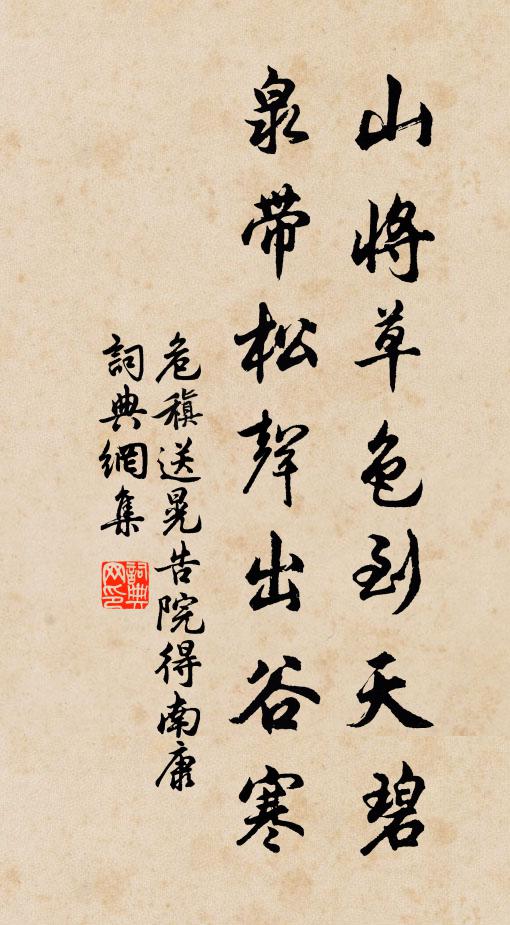 山將草色到天碧
泉帶松聲出谷寒
危稹送晃告院得南康
詞典網集
詞典网印